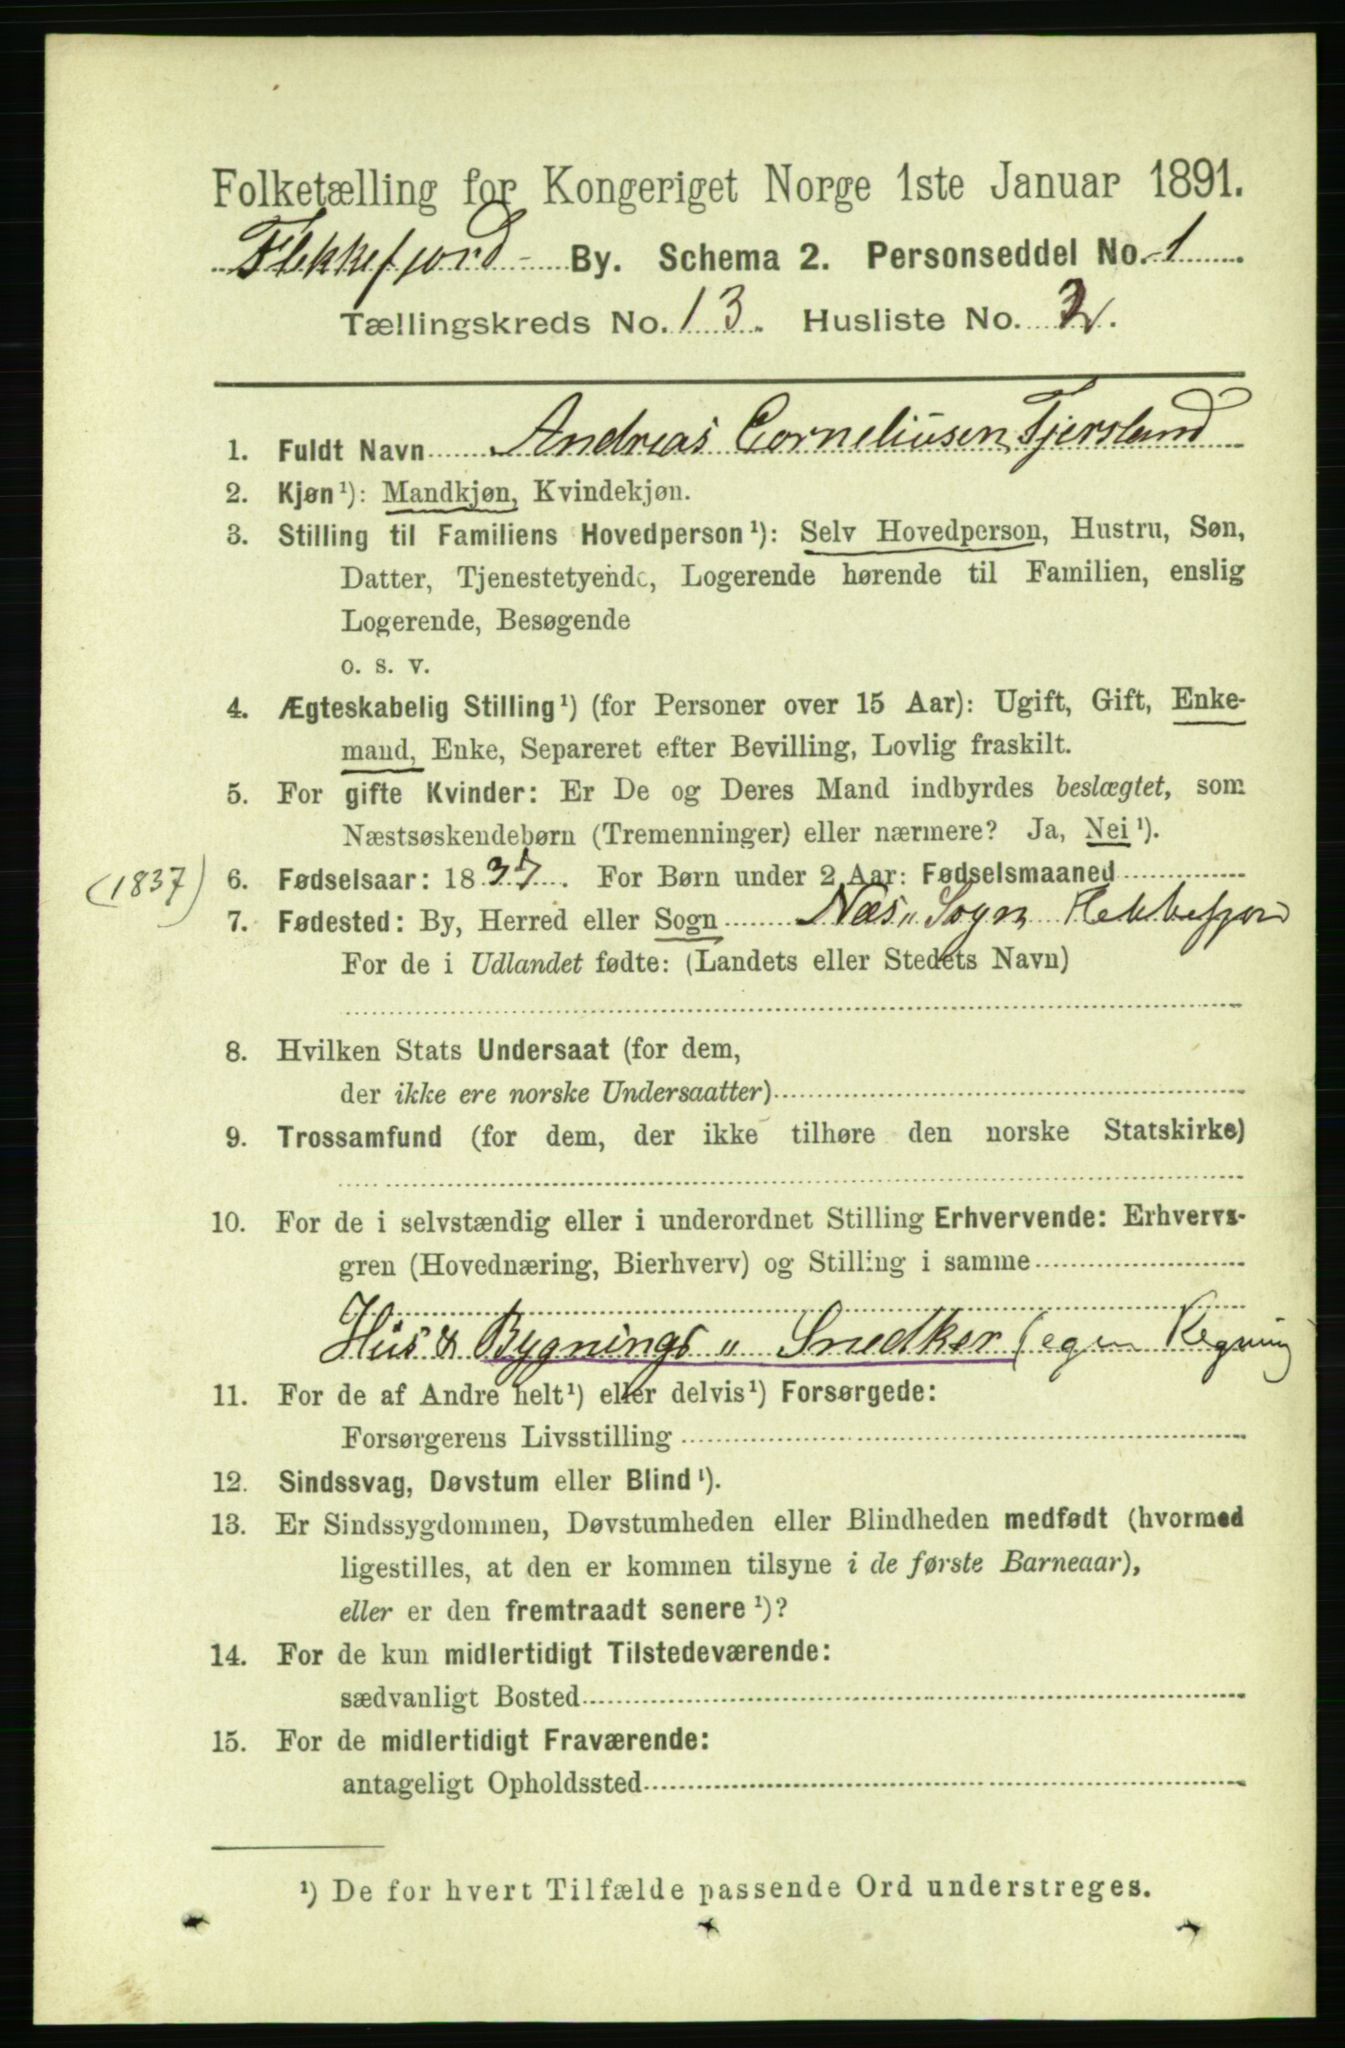 Folketælling for Kongeriget Norge 1ste Januar 1891.
Flekkefjord By. Schema 2. Personseddel No. 1
Tællingskreds No. 13. Husliste No. 2.
1. Fuldt Navn Andreas Corneliusen Tjersland
2. Kjøn¹): Mandkjøn, Kvindekjøn.
3. Stilling til Familiens Hovedperson¹): Selv Hovedperson, Hustru, Søn,
Datter, Tjenestetyende, Logerende hørende til Familien, enslig
Logerende, Besøgende
o. s. v.
4. Ægteskabelig Stilling¹) (for Personer over 15 Aar): Ugift, Gift, Enke-
mand, Enke, Separeret efter Bevilling, Lovlig fraskilt.
5. For gifte Kvinder: Er De og Deres Mand indbyrdes beslægtet, som
Næstsøskendebørn (Tremenninger) eller nærmere? Ja, Nei¹).
(1837) 6. Fødselsaar: 1837. For Børn under 2 Aar: Fødselsmaaned
7. Fødested: By, Herred eller Sogn Næs " Sogn Flekkefjord
For de i Udlandet fødte: (Landets eller Stedets Navn)
8. Hvilken Stats Undersaat (for dem,
der ikke ere norske Undersaatter)
9. Trossamfund (for dem, der ikke tilhøre den norske Statskirke)
10. For de i selvstændig eller i underordnet Stilling Erhvervende: Erhvervs-
gren (Hovednæring, Bierhverv) og Stilling i samme
Hus & Bygnings " Snedker (egen Regning)
11. For de af Andre helt¹) eller delvis¹) Forsørgede:
Forsørgerens Livsstilling
12. Sindssvag, Døvstum eller Blind¹).
13. Er Sindssygdommen, Døvstumheden eller Blindheden medfødt (hvormed
ligestilles, at den er kommen tilsyne i de første Barneaar),
eller er den fremtraadt senere¹)?
14. For de kun midlertidigt Tilstedeværende:
sædvanligt Bosted
15. For de midlertidigt Fraværende:
antageligt Opholdssted
¹) De for hvert Tilfælde passende Ord understreges.